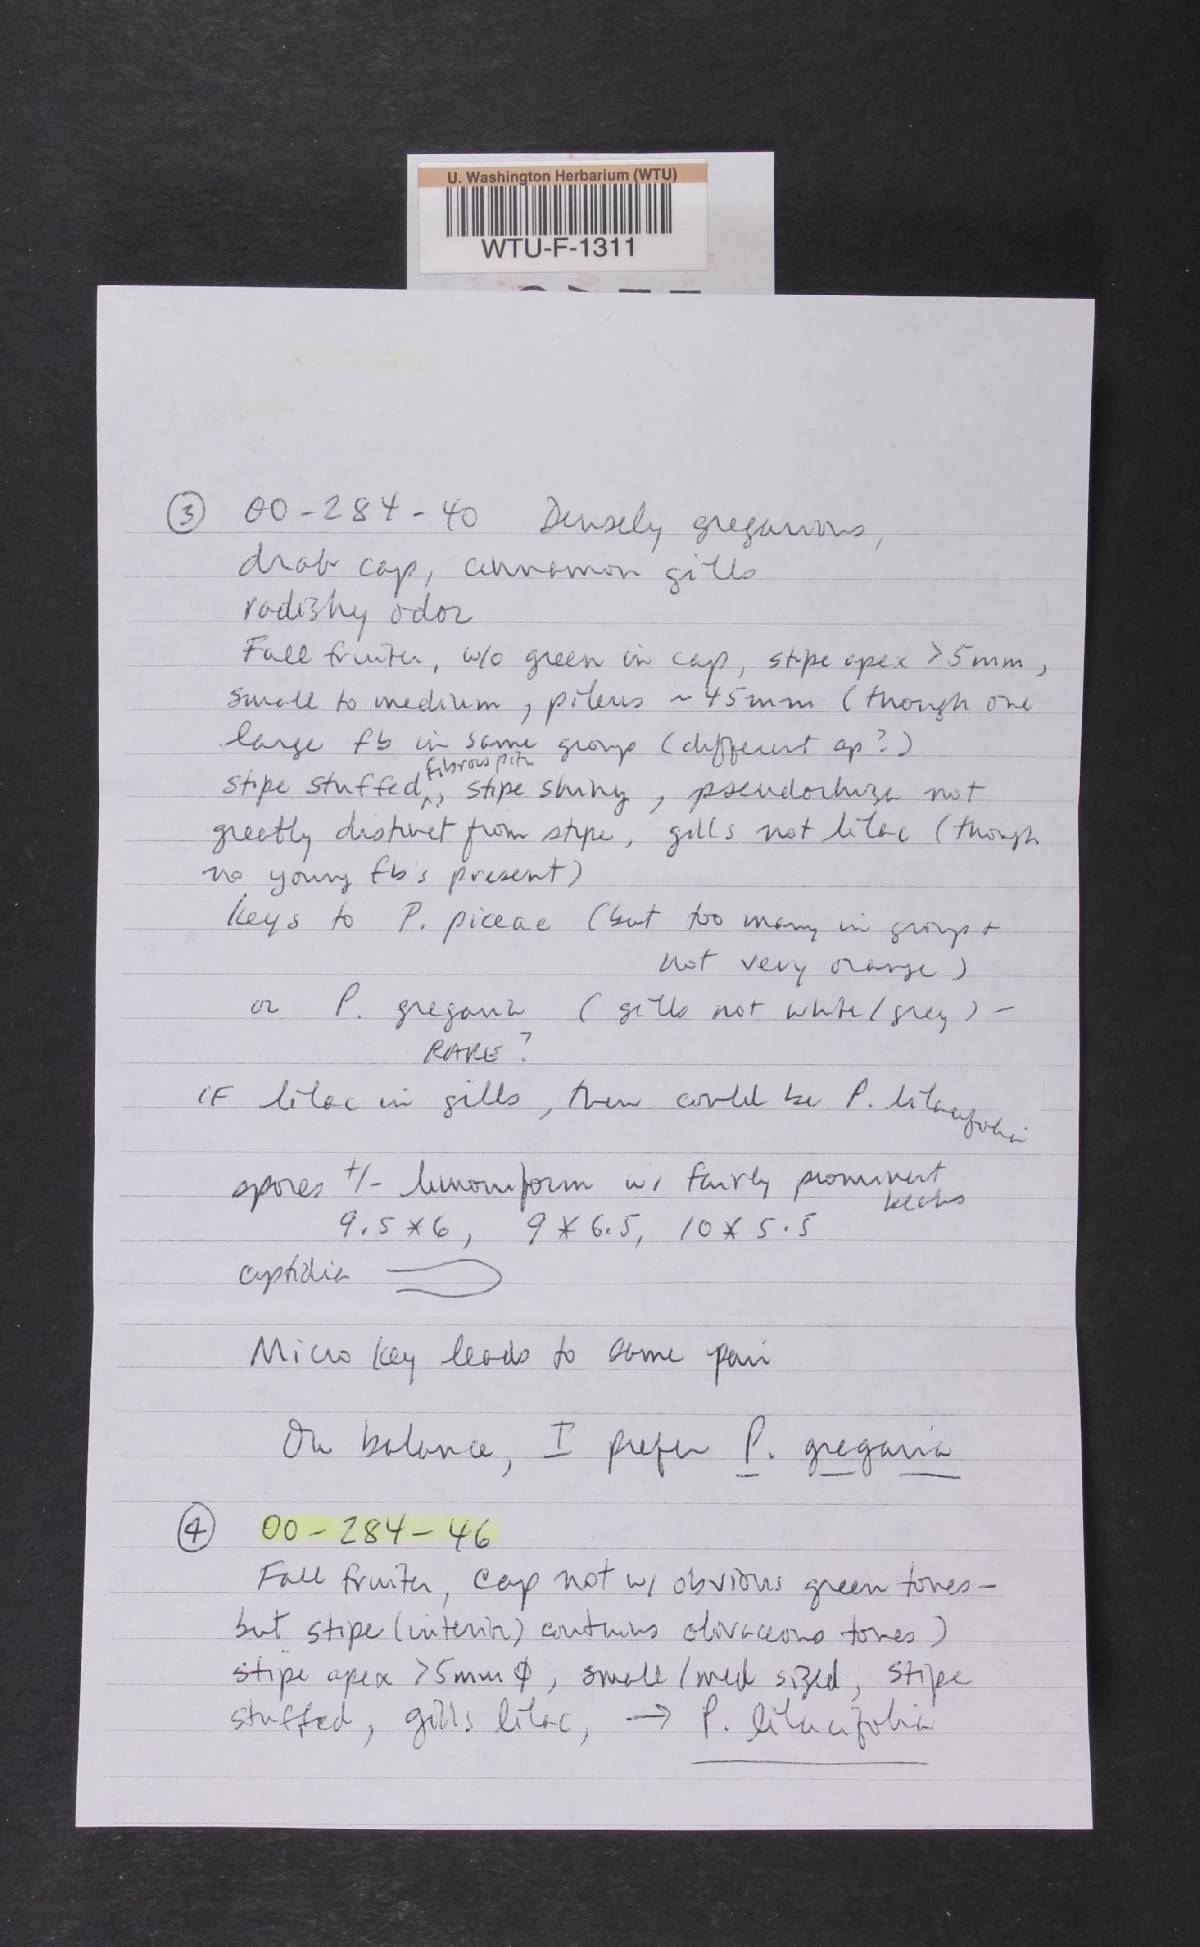 U. Washington Herbarium (WTU)
WTU-F-1311
③ 00-284-40 Densely gregarious,
drab cap, cinnamon gills
radishy odor
Fall fruiter, w/o green in cap, stipe apex >5mm,
small to medium, pileus ~45mm (though one
large fb in same group (different sp?)
fibrous pith
stipe stuffed^, stipe shiny, pseudorhiza not
greatly distinct from stipe, gills not lilac (though
no young fb's present)
keys to P. piceae (but too many in group +
not very orange)
or P. gregaria (gills not white/grey) -
RARE?
IF lilac in gills, then could be P. lilacifolia
spores +/- limoniform w/ fairly prominent
beaks
9.5*6, 9*6.5, 10*5.5
cystidia
Micro key leads to same pair
On balance, I prefer P. gregaria
④ 00-284-46
Fall fruiter, cap not w/ obvious green tones-
but stipe (interior) contains olivaceous tones)
stipe apex >5mm φ, small/med sized, stipe
stuffed, gills lilac, → P. lilacifolia